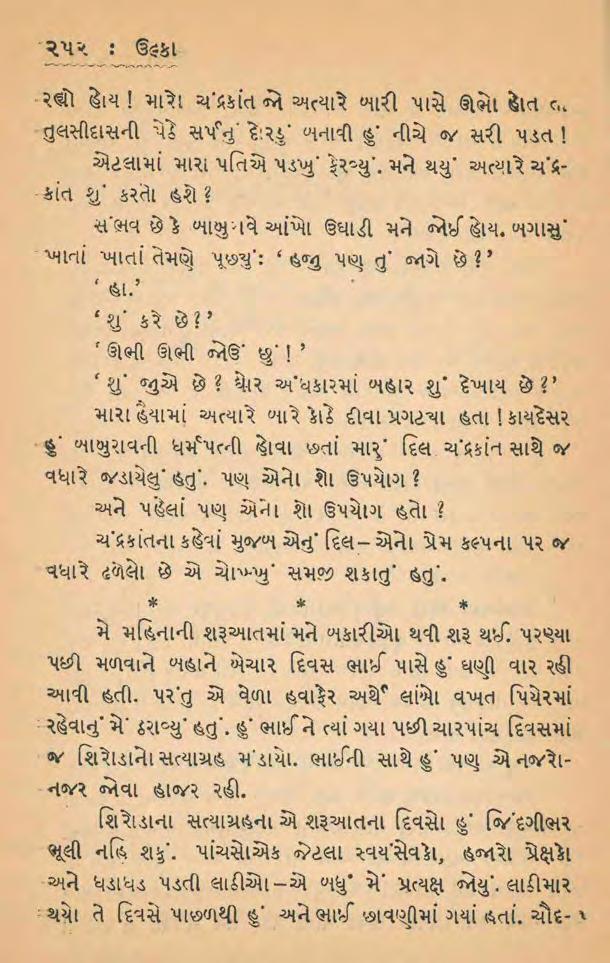 ૨૫૨ : ઉલ્કા
રહ્યો હોય ! મારો ચંદ્રકાંત જો અત્યારે બારી પાસે ઊભો હોત
તુલસીદાસની પેઠે સર્પનું દોરડું બનાવી હું નીચે જ સરી પડત !
એટલામાં મારા પતિએ પડખું ફેરવ્યું. મને થયું અત્યારે ચંદ્ર-
કાંત શું કરતો હશે ?
સંભવ છે કે બાબુરાવે આંખો ઉઘાડી મને જોઈ હોય. બગાસું
ખાતાં ખાતાં તેમણે પૂછ્યું: ‘ હજુ પણ તું જાગે છે ? ’
‘ હા.’
‘ શું કરે છે? ’
‘ ઊભી ઊભી જોઉં છું ! ’
‘ શું જુએ છે ? ઘોર અંધકારમાં બહાર શું દેખાય છે ?’
મારા હૈયામાં અત્યારે બારે કોઠે દીવા પ્રગટ્યા હતા ! કાયદેસર
હું બાબુરાવની ધર્મપત્ની હોવા છતાં મારું દિલ ચંદ્રકાંત સાથે જ
વધારે જડાયેલું હતું. પણ એનો શો ઉપયોગ ?
અને પહેલાં પણ એનો શો ઉપયોગ હતો ?
ચંદ્રકાંતના કહેવાં મુજબ એનું દિલ – એનો પ્રેમ કલ્પના પર જ
વધારે ઢળેલો છે એ ચોખ્ખું સમજી શકાતું હતું.
* * *
મે મહિનાની શરૂઆતમાં મને બકારીઓ થવી શરૂ થઈ. પરણ્યા
પછી મળવાને બહાને બેચાર દિવસ ભાઈ પાસે હું ઘણી વાર રહી
આવી હતી. પરંતુ એ વેળા હવાફેર અર્થે લાંબો વખત પિયેરમાં
રહેવાનું મેં ઠરાવ્યું હતું. હું ભાઈને ત્યાં ગયા પછી ચારપાંચ દિવસમાં
જ શિરોડાનો સત્યાગ્રહ મંડાયો. ભાઈની સાથે હું પણ એ નજરો-
નજર જોવા હાજર રહી.
શિરોડાના સત્યાગ્રહના એ શરૂઆતના દિવસો હું જિંદગીભર
ભૂલી નહિ શકું. પાંચસોએક જેટલા સ્વયંસેવકો, હજારો પ્રેક્ષકો
અને ધડાધડ પડતી લાઠીઓ – એ બધું મેં પ્રત્યક્ષ જોયું. લાઠીમાર
થયો તે દિવસે પાછળથી હું અને ભાઈ છાવણીમાં ગયાં હતાં. ચૌદ-